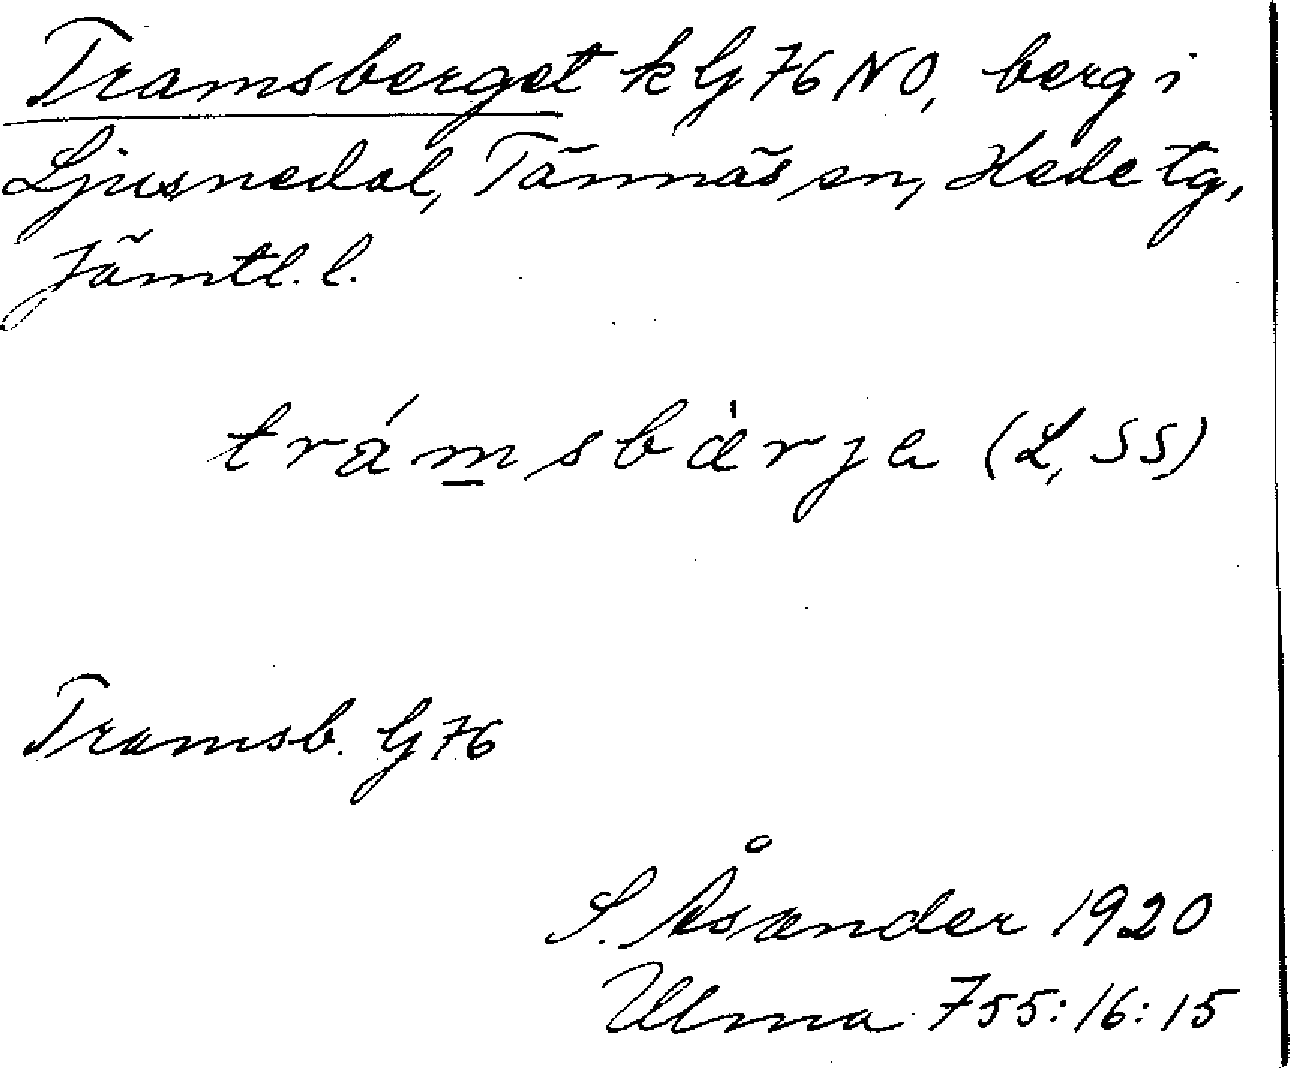 Tramsberget k G 76 NO, berg i
Ljusnedal, Tännäs sn, Hede tg,
Jämtl. l.
trámsbàrja (L, SS)
Tramsb. G 76
S. Åsander 1920
Ulma 755:16:15